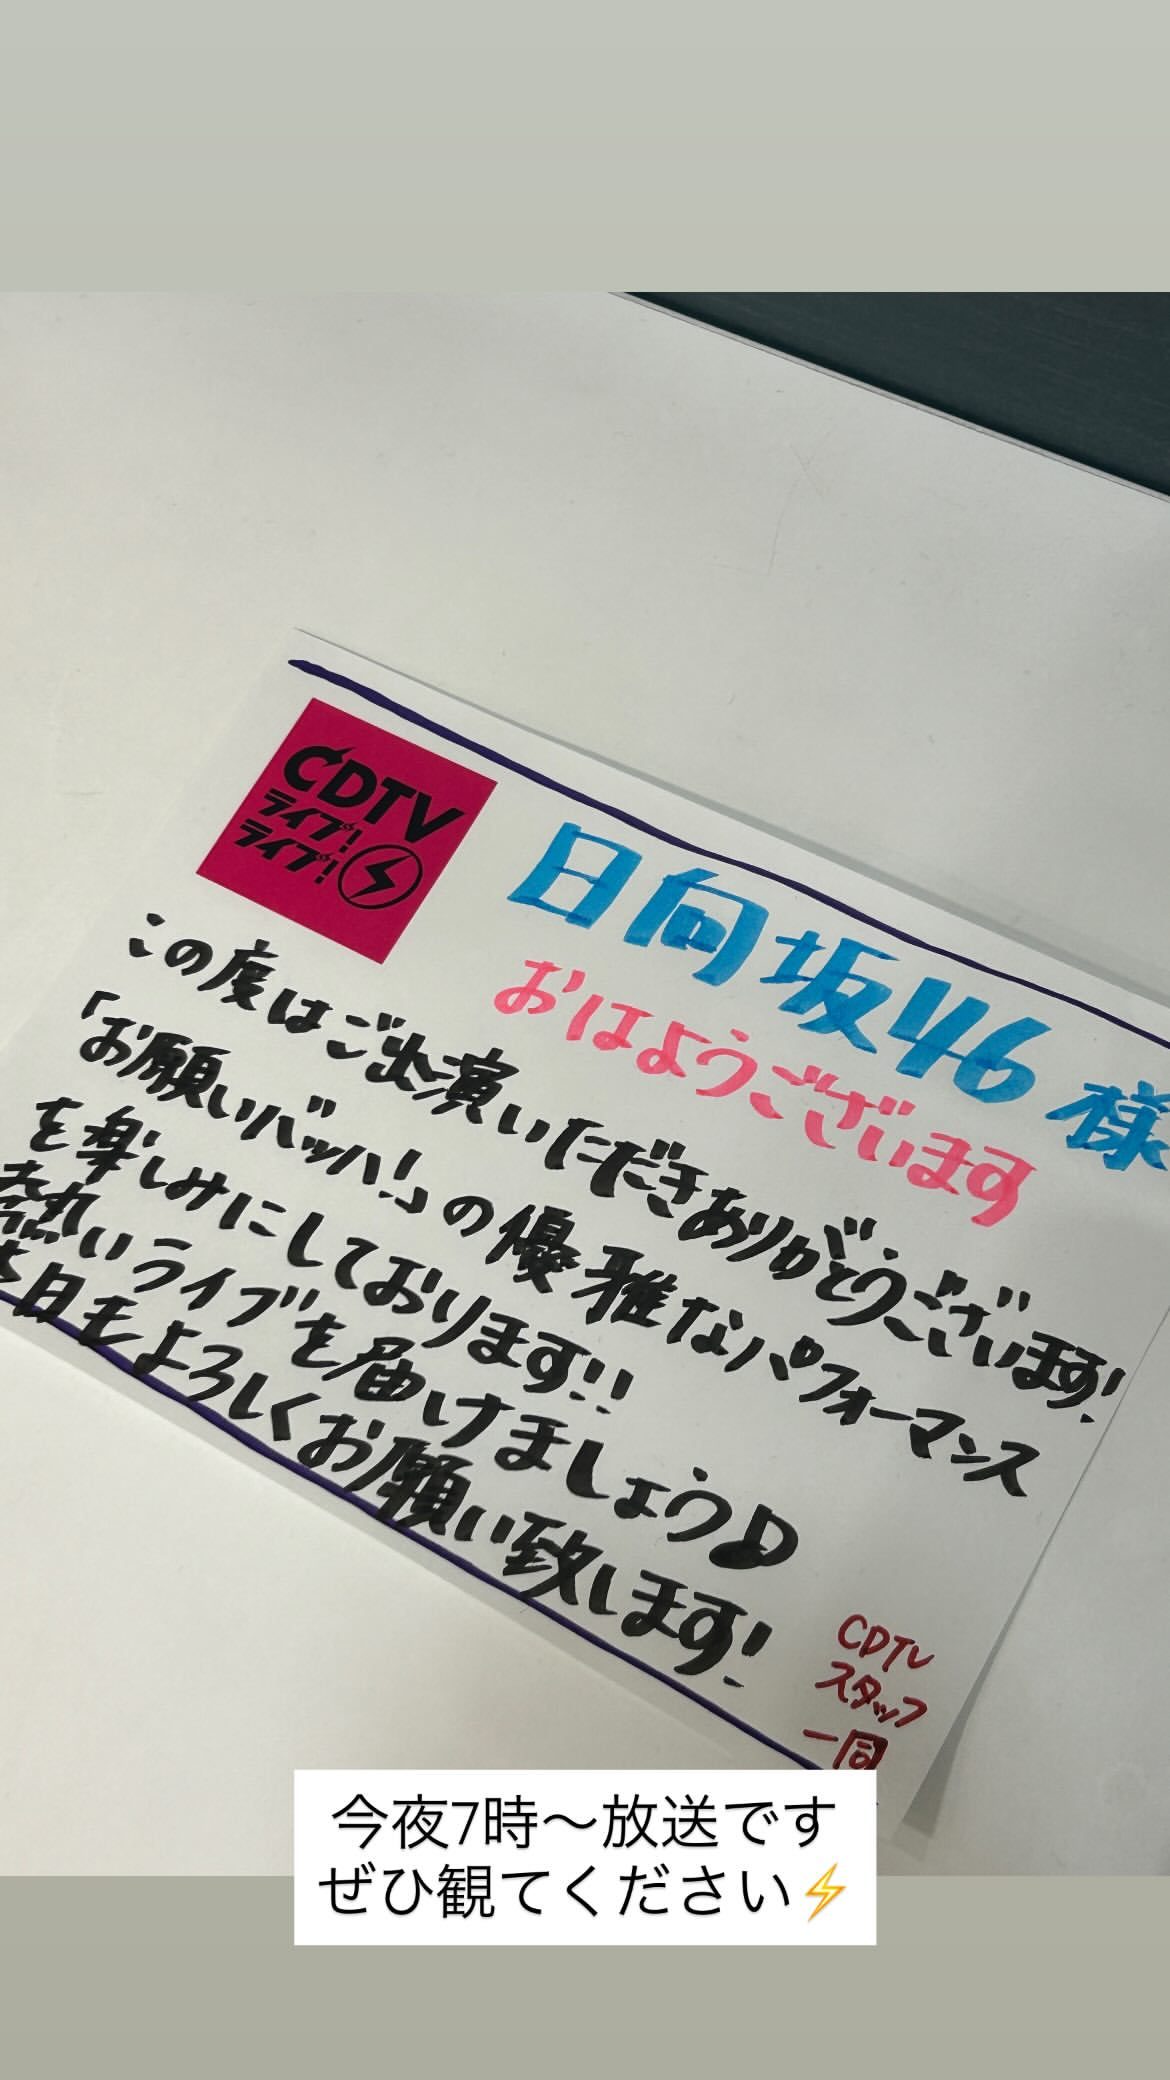 CDTV
ライブ!
ライブ!
日向坂46様
おはようございます
この度はご出演いただきありがとうございます!
「お願いバッハ!」の優雅なパフォーマンス
を楽しみにしております!!
熱いライブを届けましょう♪
本日もよろしくお願い致します!
CDTV
スタッフ
一同
今夜7時〜放送です
ぜひ観てください⚡